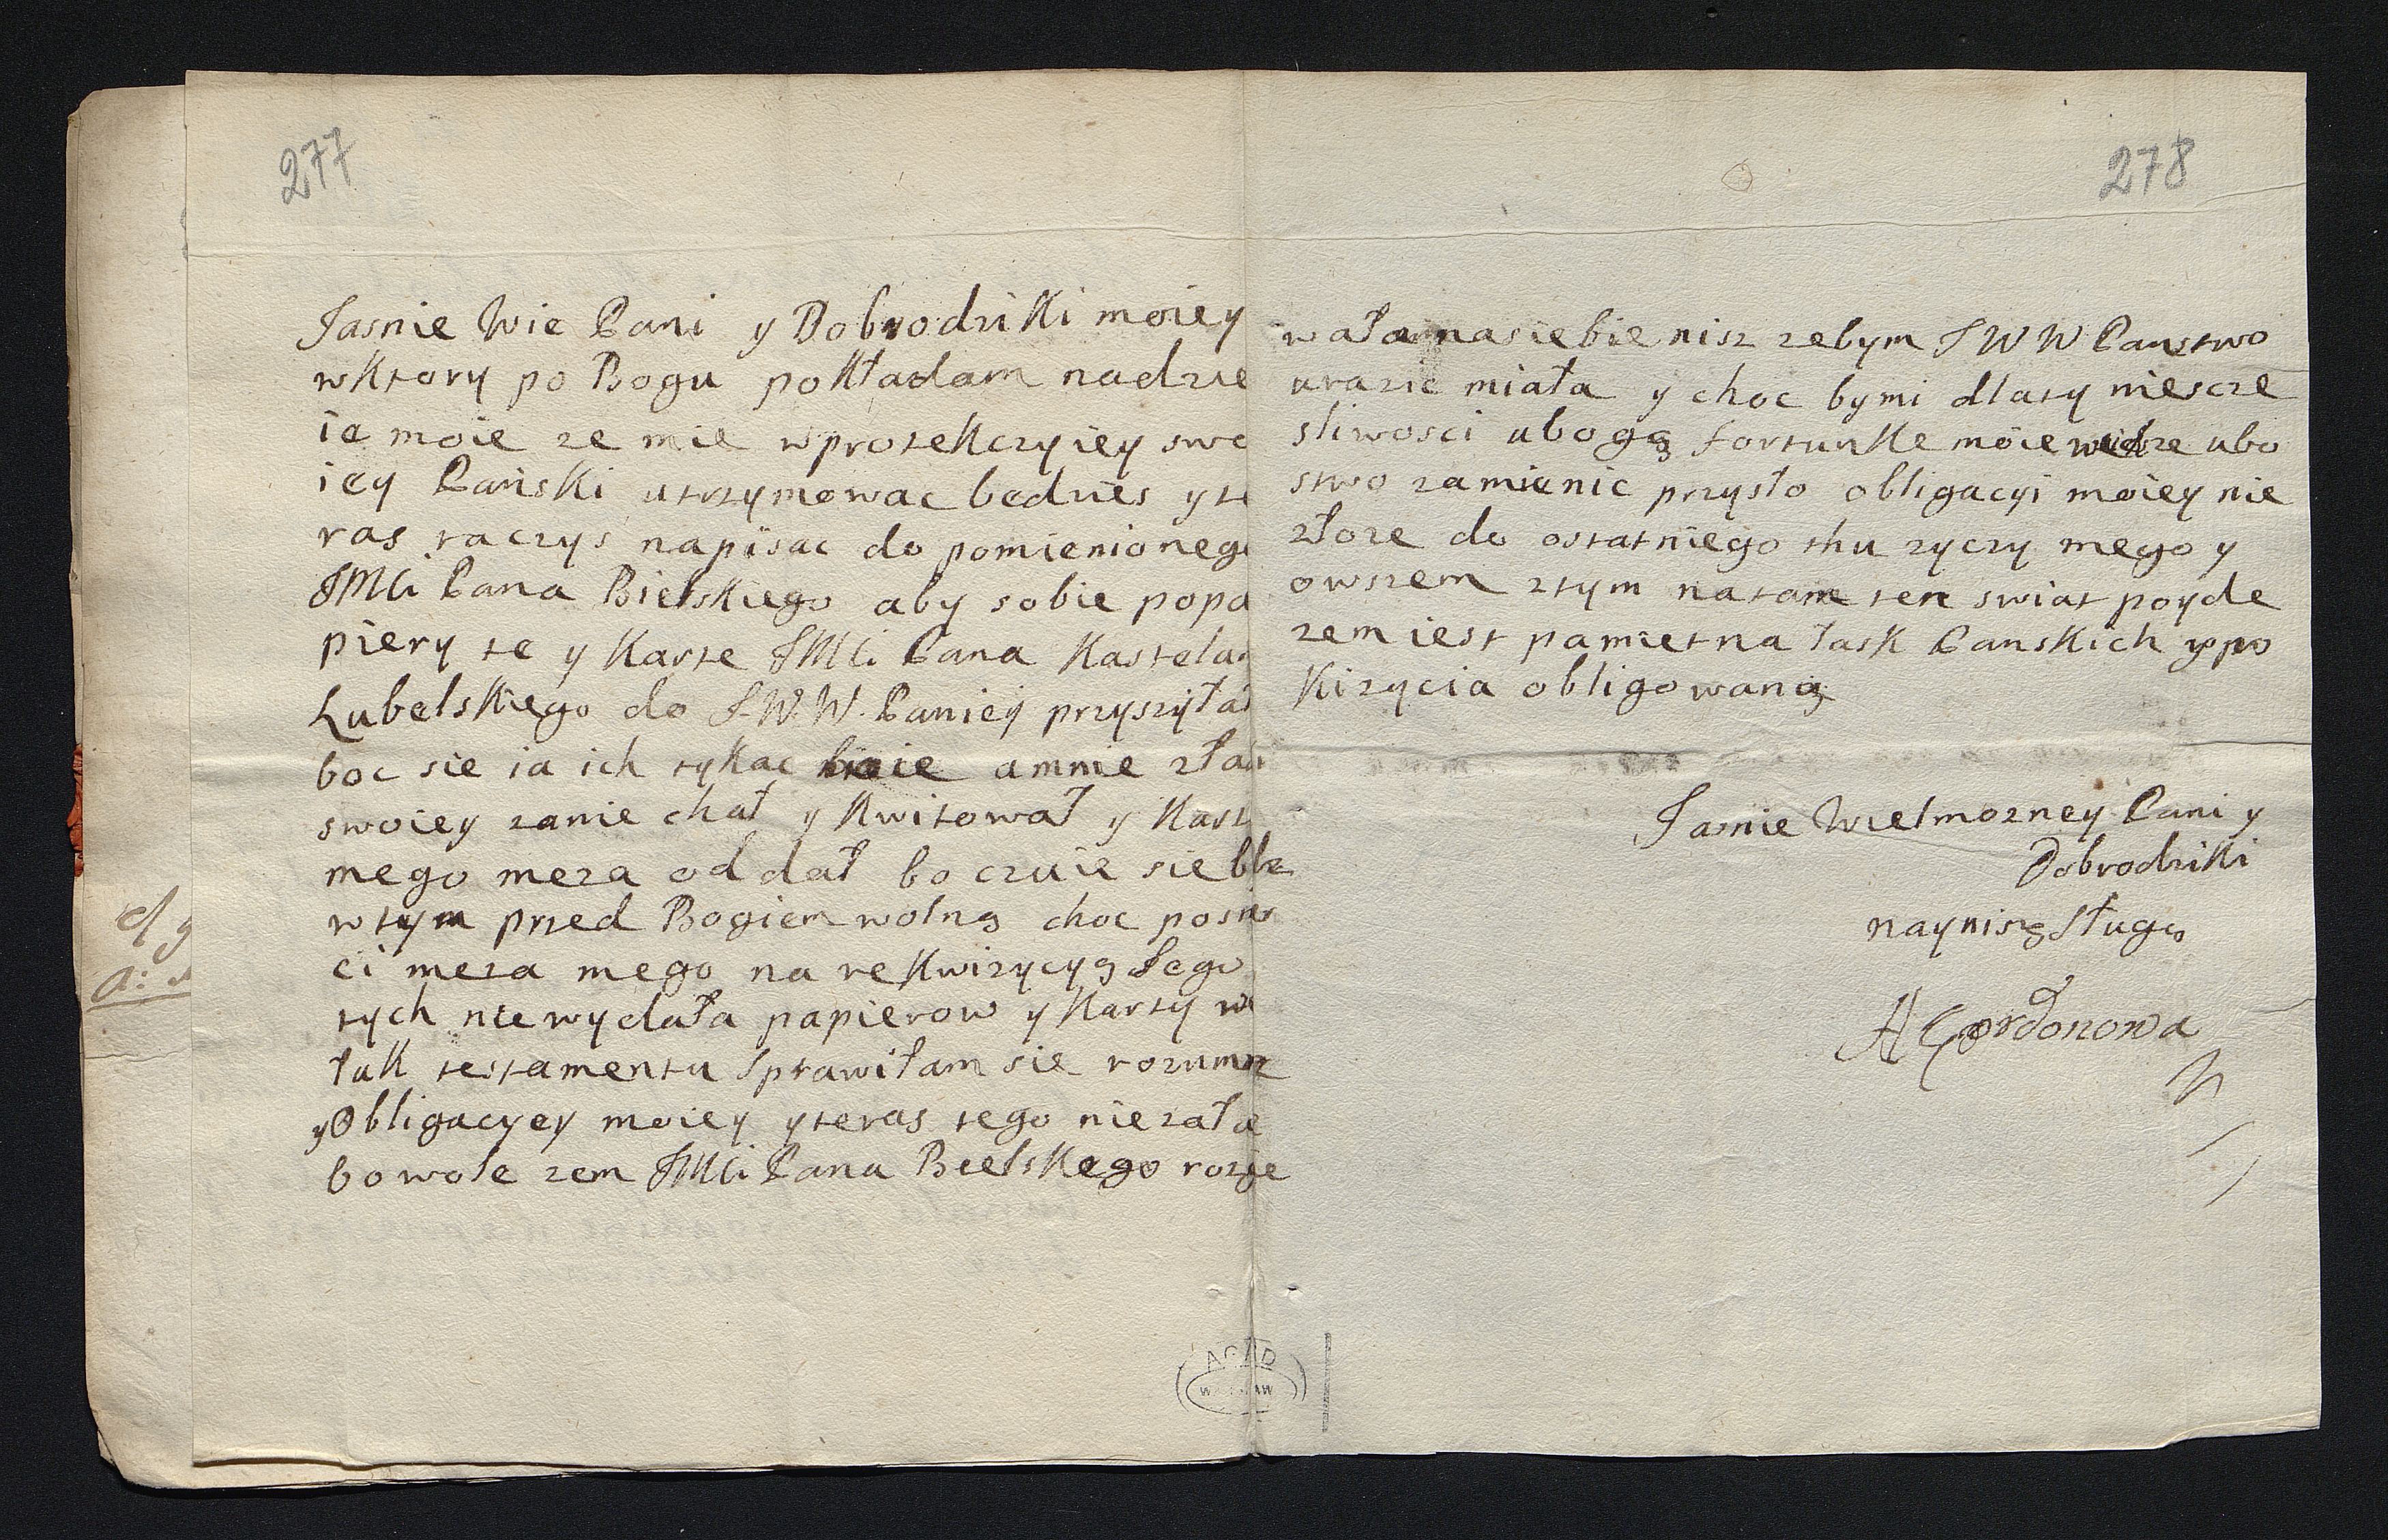 277
Jasnie Wie Pani y Dobrodziki moiey
wktory po Bogu pokładam nadzie
ie moie ze mie wprotekczyiey swo
iey Pański utrzymowac bedzies y te
ras raczys napisac do pomienionego
JMCi Pana Bielskiego aby sobie popa
piery te y karte JMCi Pana Kastelan
Lubelskiego do J.W.W. Paniey przysyłał
boc sie ia ich tykac boie amnie zład
swoiey zanie chał y kwitował y kart
mego meza oddał bo czuie sie
wtym przed Bogiem wolną choc posmr
ci meza mego na rekwizycyą Jego
tych niewydała papierow y karty we
łuk testamentu sprawiłam sie rozumiz
yObligacyey moiey yteras tego niezału
bo wole zem JMCi Pana Bielskego rozgie
278
wała nasiebie nisz zebym J W W Panstwo
urazic miała y choc bymi dlaty niescze
sliwosci ubogą fortunke moie ubo
stwo zamienic przysło obligacyi moiey nie
złoze do ostatniego thu zyczy mego y
owszem ztym natam ten swiat poyde
zem iest pamietna łask Panskich y po
ki zycia obligowaną
Jasnie Wielmozney Pani y
Dobrodziki
nayniszą sługą
A Gordonowa
AGAD